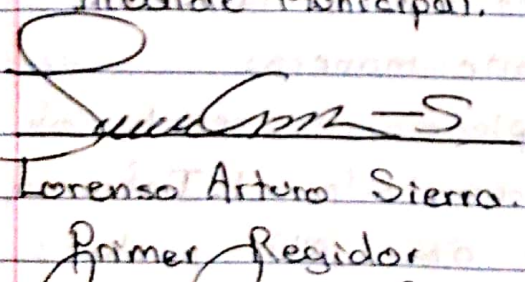 Alcalde Municipal.
Lorenso Arturo Sierra.
Primer Regidor